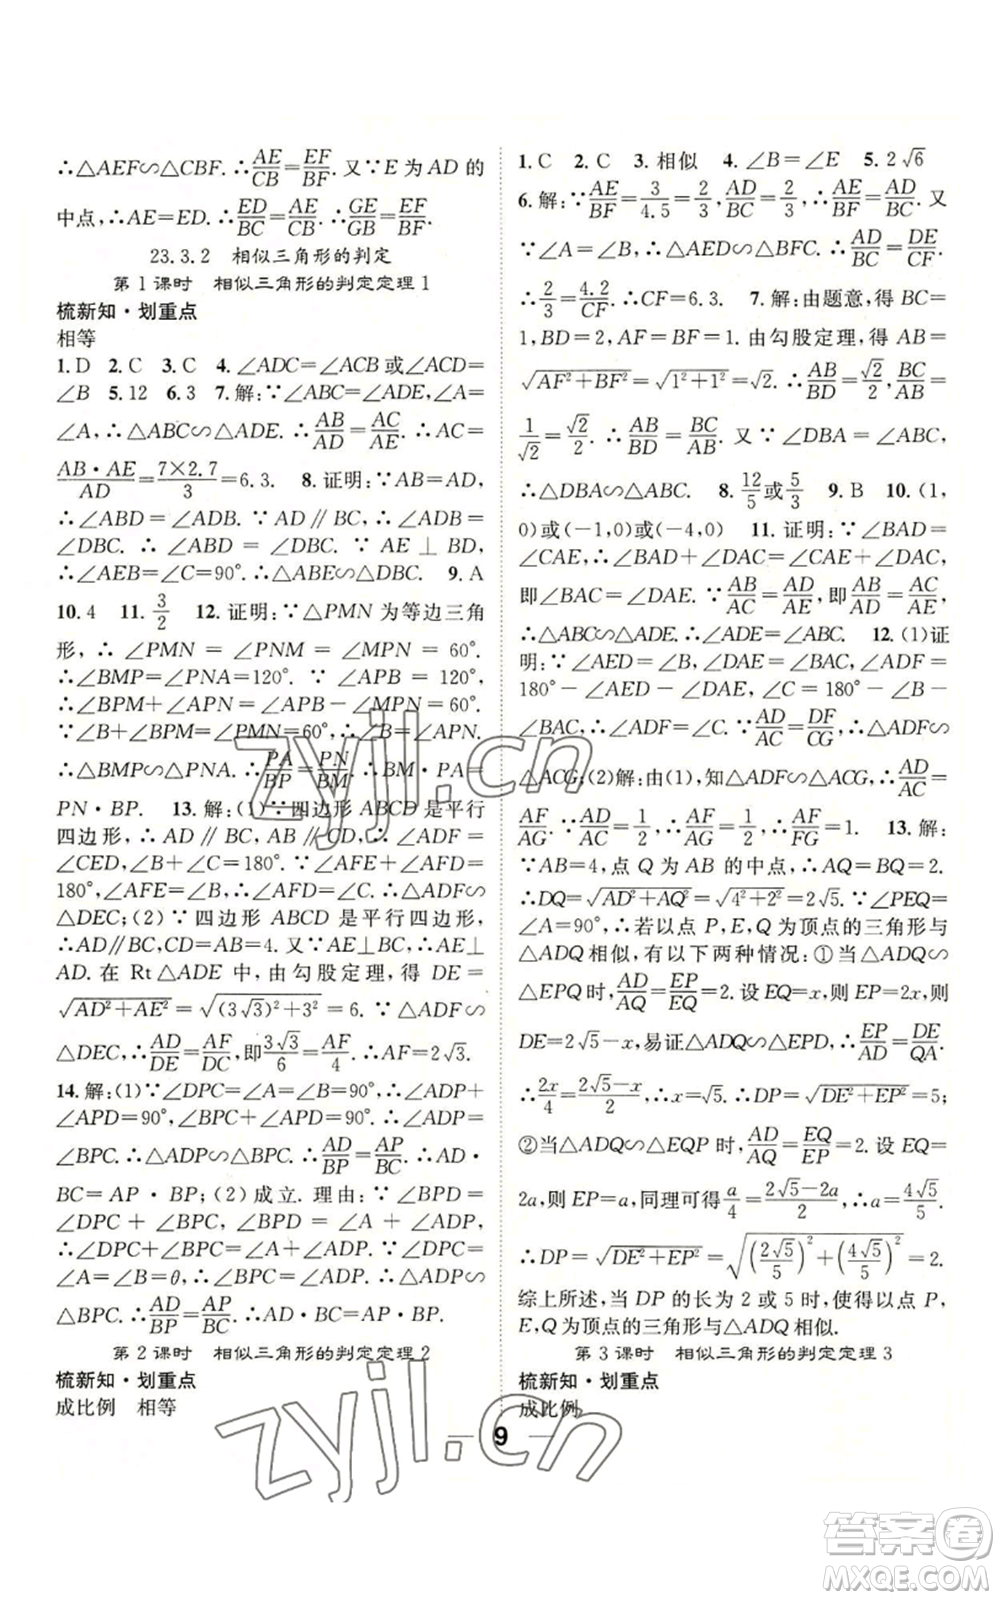 ∴△AEF∽△CBF. ∴AE/CB=EF/BF. 又∵E 为 AD 的
中点, ∴AE=ED. ∴ED/BC=AE/CB. ∴GE/GB=EF/BF.
23.3.2 相似三角形的判定
第 1 课时 相似三角形的判定定理 1
梳新知·划重点
相等
1. D 2. C 3. C 4. ∠ADC=∠ACB或∠ACD=
∠B 5. 12 6. 3 7. 解: ∵∠ABC=∠ADE, ∠A=
∠A, ∴△ABC∽△ADE. ∴AB/AD=AC/AE. ∴AC=
AB·AE/AD=7×2.7/3=6.3. 8. 证明: ∵AB=AD,
∴∠ABD=∠ADB. ∵AD∥BC, ∴∠ADB=
∠DBC. ∴∠ABD=∠DBC. ∵AE⊥BD,
∴∠AEB=∠C=90°. ∴△ABE∽△DBC. 9. A
10. 4 11. 3/2 12. 证明: ∵△PMN 为等边三角
形, ∴∠PMN=∠PNM=∠MPN=60°.
∴∠BMP=∠PNA=120°. ∵∠APB=120°,
∴∠BPM+∠APN=∠APB-∠MPN=60°.
∵∠B+∠BPM=∠PMN=60°, ∴∠B=∠APN.
∴△BMP∽△PNA. ∴PA/BP=PN/BM. ∴BM·PA=
PN·BP. 13. 解: (1)∵四边形 ABCD 是平行
四边形, ∴AD∥BC, AB∥CD. ∴∠ADF=
∠CED, ∠B+∠C=180°. ∵∠AFE+∠AFD=
180°, ∠AFE=∠B, ∴∠AFD=∠C. ∴△ADF∽
△DEC; (2)∵四边形 ABCD 是平行四边形,
∴AD∥BC, CD=AB=4. 又∵AE⊥BC, ∴AE⊥
AD. 在 Rt△ADE 中, 由勾股定理, 得 DE=
√(AD²+AE²)=√((3√3)²+3²)=6. ∵△ADF∽
△DEC, ∴AD/DE=AF/DC, 即3√3/6=AF/4. ∴AF=2√3.
14. 解: (1)∵∠DPC=∠A=∠B=90°, ∴∠ADP+
∠APD=90°, ∠BPC+∠APD=90°. ∴∠ADP=
∠BPC. ∴△ADP∽△BPC. ∴AD/BP=AP/BC. ∴AD·
BC=AP·BP; (2)成立. 理由: ∵∠BPD=
∠DPC+∠BPC, ∠BPD=∠A+∠ADP,
∴∠DPC+∠BPC=∠A+∠ADP. ∵∠DPC=
∠A=∠B=θ, ∴∠BPC=∠ADP. ∴△ADP∽
△BPC. ∴AD/BP=AP/BC. ∴AD·BC=AP·BP.
第 2 课时 相似三角形的判定定理 2
梳新知·划重点
成比例 相等
1. C 2. C 3. 相似 4. ∠B=∠E 5. 2√6
6. 解: ∵AE/BF=3/4.5=2/3, AD/BC=2/3, ∴AE/BF=AD/BC. 又
∵∠A=∠B, ∴△AED∽△BFC. ∴AD/BC=DE/CF.
∴2/3=4.2/CF. ∴CF=6.3. 7. 解: 由题意, 得 BC=
1, BD=2, AF=BF=1. 由勾股定理, 得 AB=
√(AF²+BF²)=√(1²+1²)=√2. ∴AB/BD=√2/2, BC/AB=
1/√2=√2/2. ∴AB/BD=BC/AB. 又∵∠DBA=∠ABC,
∴△DBA∽△ABC. 8. 12/5或5/3 9. B 10. (1,
0)或(-1,0)或(-4,0) 11. 证明: ∵∠BAD=
∠CAE, ∴∠BAD+∠DAC=∠CAE+∠DAC,
即∠BAC=∠DAE. ∵AB/AC=AD/AE, ∴AB/AD=AC/AE.
∴△ABC∽△ADE. ∴∠ADE=∠ABC. 12. (1)证
明: ∵∠AED=∠B, ∠DAE=∠BAC, ∠ADF=
180°-∠AED-∠DAE, ∠C=180°-∠B-
∠BAC, ∴∠ADF=∠C. ∵AD/AC=DF/CG, ∴△ADF∽
△ACG; (2)解: 由(1), 知△ADF∽△ACG, ∴AD/AC=
AF/AG. ∵AD/AC=1/2, ∴AF/AG=1/2, ∴AF/FG=1. 13. 解:
∵AB=4, 点 Q 为 AB 的中点, ∴AQ=BQ=2.
∴DQ=√(AD²+AQ²)=√(4²+2²)=2√5. ∵∠PEQ=
∠A=90°, ∴若以点 P, E, Q 为顶点的三角形与
△ADQ 相似, 有以下两种情况: ①当△ADQ∽
△EPQ 时, AD/AQ=EP/EQ=2. 设 EQ=x, EP=2x, 则
DE=2√5-x, 易证△ADQ∽△EPD, ∴EP/AD=DE/QA.
∴2x/4=(2√5-x)/2, ∴x=√5. ∴DP=√(DE²+EP²)=5;
②当△ADQ∽△EQP 时, AD/AQ=EQ/EP=2. 设 EQ=
2a, 则 EP=a, 同理可得a/4=(2√5-2a)/2, ∴a=4√5/5.
∴DP=√(DE²+EP²)=√((2√5/5)²+(4√5/5)²)=2.
综上所述, 当 DP 的长为 2 或 5 时, 使得以点 P,
E, Q 为顶点的三角形与△ADQ 相似.
第 3 课时 相似三角形的判定定理 3
梳新知·划重点
成比例
9
zyjl.cn
zyjl.cn
答案圈
MXQE.COM